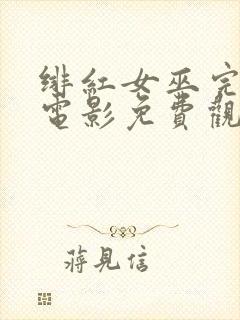 绯紅女巫完
電影免費觀
蔣見信